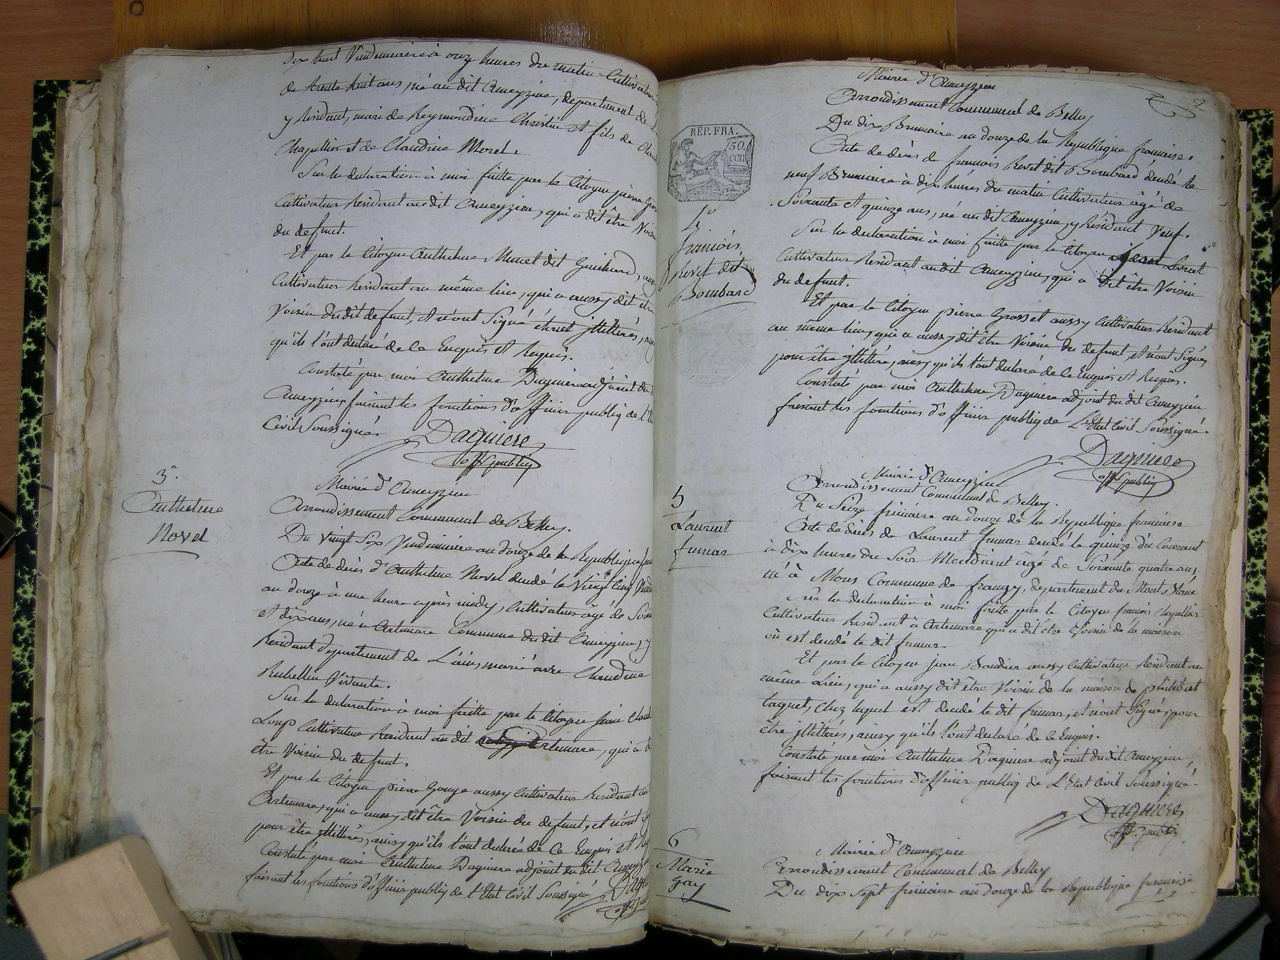 dix huit Vendemiaire à onze heures du matin Cultivateur
de trente huit ans, né au dit Ameyzieu, departement de
y Residant, mari de Reymondine Christin et fils de
Chapellier et de Claudine Morel.
Sur la declaration à moi faitte par le Citoyen pierre
Cultivateur Residant au dit Ameyzieu, qui a dit être Voisin
du defunt.
Et par le Citoyen Anthelme Muret dit
Cultivateur Residant au même lieu, qui a aussy dit être
Voisin du dit defunt, et n'ont Signé étant jllitérés,
qu'ils l'ont declaré de la Enquis et Requis.
Constaté par moi Anthelme Daguiere adjoint du
Ameyzieu faisant les fonctions d'officier public de l'
Civil Soussigné
Daguiere
off. public
3.
Anthelme
Novel
Mairie d'Ameyzieu
Arrondissement Communal de Belley.
Du Vingt Six Vendemiaire an douze de la Republique
Acte de decès d'Anthelme Novel decedé le Vingt cinq
an douze à une heure après midy, Cultivateur âgé de
et dix ans, né à Artemare Commune du dit Ameyzieu, y
Residant departement de L'ain, marié avec Claudine
Rubellin Vivante.
Sur la declaration à moi faitte par le Citoyen
Loup Cultivateur Residant au dit Artemare, qui a
être Voisin du defunt.
Et par le Citoyen pierre Gouge aussy Cultivateur Residant
Artemare, qui a aussy dit être Voisin du defunt, et n'ont
pour être jllitérés, ainsy qu'ils l'ont declaré de ce Enquis et
Constaté par moi Anthelme Daguiere adjoint du dit
faisant les fonctions d'officier public de l'Etat Civil Soussigné
Mairie d'Ameyzieu
Arrondissement Communal de Belley
Du dix Brumaire an douze de la Republique francaise.
REP. FRA.
50.
CEN.
4
francois
Revet dit
Bombard
Acte de decès de francois Revet dit Bombard decedé le
neuf Brumaire à dix heures du matin Cultivateur âgé de
Soixante et quinze ans, né au dit Ameyzieu y Residant Veuf.
Sur la declaration à moi faitte par le Citoyen
Cultivateur Residant au dit Ameyzieu, qui a dit être Voisin
du defunt.
Et par le Citoyen pierre Grosset aussy Cultivateur Residant
au même lieu, qui a aussy dit être Voisin du defunt, et n'ont Signé
pour être jllitéré, ainsy qu'ils l'ont declaré de ce Enquis et Requis.
Constaté par moi Anthelme Daguiere adjoint du dit Ameyzieu
faisant les fonctions d'officier public de L'Etat Civil Soussigné.
Daguiere
off. public
5
Laurent
Mairie d'Ameyzieu
Arrondissement Communal de Belley.
Du Seize frimaire an douze de la Republique francaise
Acte de decès de Laurent decedé le quinze du Courant
à dix heures du Soir Mendiant âgé de Soixante quatre ans
né à Mons Commune de frangy, departement du Mont blanc
Sur la declaration à moi faitte par le Citoyen francois Chapellier
Cultivateur Residant à Artemare qui a dit être Voisin de la maison
où est decedé le dit
Et par le Citoyen Jean aussy Cultivateur Residant au
même Lieu, qui a aussy dit être Voisin de la maison de philibert
taquet, chez lequel est decedé le dit et n'ont Signé pour
être jllitérés, ainsy qu'ils l'ont declaré de ce Enquis.
Constaté par moi Anthelme Daguiere adjoint du dit Ameyzieu
faisant les fonctions d'officier public de L'Etat Civil Soussigné.
Daguiere
off. public
6
Marie
Gay
Mairie d'Ameyzieu
Arrondissement Communal de Belley
Du dix Sept frimaire an douze de la Republique francaise